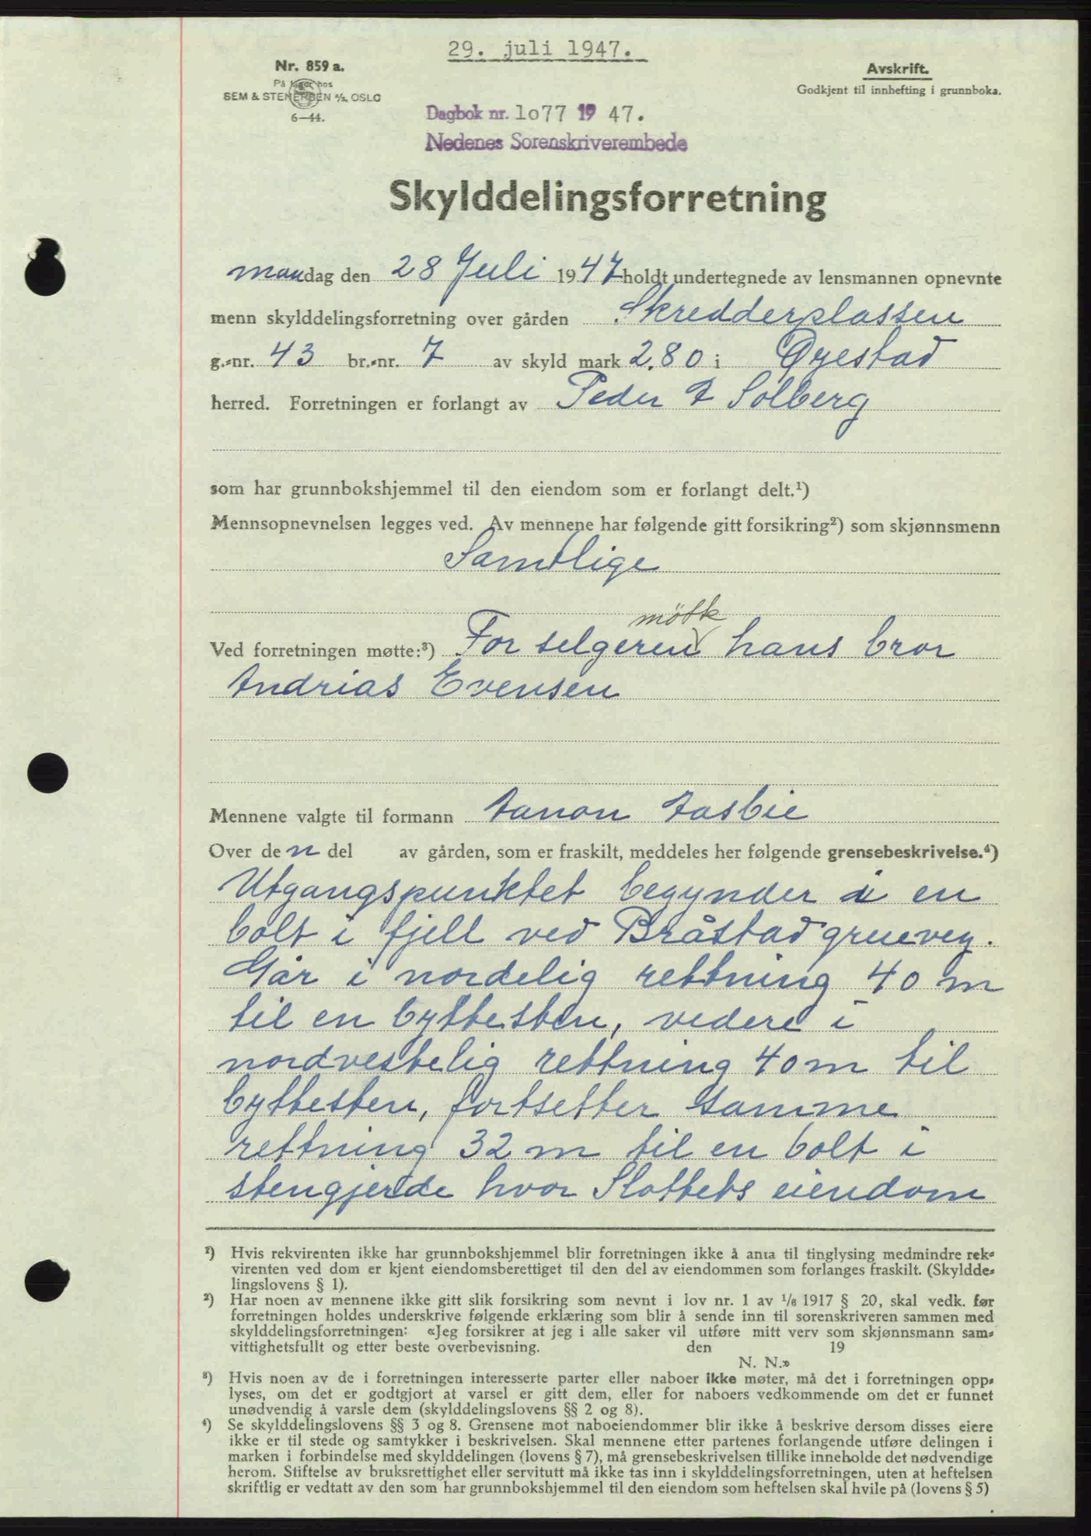 29. juli 1947.
Nr. 859 a.
På lager hos
SEM & STENERSEN A/S, OSLO
6—44.
Avskrift.
Godkjent til innhefting i grunnboka.
Dagbok nr. 1o77 19 47.
Nedenes Sorenskriverembede
Skylddelingsforretning
mandag den 28 Juli 1947 holdt undertegnede av lensmannen opnevnte
menn skylddelingsforretning over gården Skredderplassen
g.-nr. 43 br.-nr. 7 av skyld mark 2.80 i Øyestad
herred. Forretningen er forlangt av Peder Solberg
som har grunnbokshjemmel til den eiendom som er forlangt delt.¹)
Mennsopnevnelsen legges ved. Av mennene har følgende gitt forsikring²) som skjønnsmenn
Samtlige
møtte
Ved forretningen møtte:³) For selgeren hans bror
Andrias Evensen
Mennene valgte til formann
Over den del av gården, som er fraskilt, meddeles her følgende grensebeskrivelse.⁴)
Utgangspunktet begynder i en
bolt i fjell ved Bråstad grueveg.
Går i nordelig rettning 40 m
til en byttesten, videre i
nordvestelig rettning 40 m til
byttesten, fortsetter samme
rettning 32 m til en bolt i
stengjerde hvor Slottets eiendom
¹) Hvis rekvirenten ikke har grunnbokshjemmel blir forretningen ikke å anta til tinglysing medmindre rek-
virenten ved dom er kjent eiendomsberettiget til den del av eiendommen som forlanges fraskilt. (Skyldde-
lingslovens § 1).
²) Har noen av mennene ikke gitt slik forsikring som nevnt i lov nr. 1 av 1/8 1917 § 20, skal vedk. før
forretningen holdes underskrive følgende erklæring som blir å sende inn til sorenskriveren sammen med
skylddelingsforretningen: «Jeg forsikrer at jeg i alle saker vil utføre mitt verv som skjønnsmann sam-
vittighetsfullt og etter beste overbevisning. den 19
N. N.»
³) Hvis noen av de i forretningen interesserte parter eller naboer ikke møter, må det i forretningen opp-
lyses, om det er godtgjort at varsel er gitt dem, eller for naboers vedkommende om det er funnet
unødvendig å varsle dem (skylddelingslovens §§ 2 og 8).
⁴) Se skylddelingslovens §§ 3 og 8. Grensene mot naboeiendommer blir ikke å beskrive dersom disses eiere
ikke er til stede og samtykker i beskrivelsen. Skal mennene etter partenes forlangende utføre delingen i
marken i forbindelse med skylddelingen (lovens § 7), må grensebeskrivelsen tillike inneholde det nødvendige
herom. Stiftelse av bruksrettighet eller servitutt må ikke tas inn i skylddelingsforretningen, uten at heftelsen
skriftlig er vedtatt av den som har grunnbokshjemmel til den eiendom som heftelsen skal hvile på (lovens § 5)